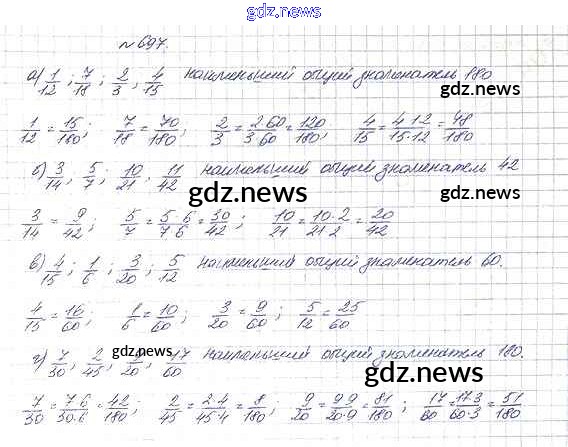 gdz.news
№697.
а) 1/12 ; 7/18 ; 2/3 , 4/15 наименьший общий знаменатель 180
gdz.news
1/12 = 15/180; 7/18 = 70/180; 2/3 = 2·60/3·60 = 120/180; 4/15 = 4·12/15·12 = 48/180
б) 3/14 , 5/7 ; 10/21 , 11/42 наименьший общий знаменатель 42
gdz.news gdz.news
3/14 = 9/42; 5/7 = 5·6/7·6 = 30/42; 10/21 = 10·2/21·2 = 20/42
в) 4/15 ; 1/6 ; 3/20 ; 5/12 наименьший общий знаменатель 60.
gdz.news
4/15 = 16/60; 1/6 = 10/60; 3/20 = 9/60; 5/12 = 25/60
г) 7/30 , 2/45 gdz.news 17/60 наименьший общий знаменатель 180.
gdz.news
7/30 = 7·6/30·6 = 42/180; 2/45 = 2·4/45·4 = 8/180; 9/20 = 9·9/20·9 = 81/180; 17/60 = 17·3/60·3 = 51/180
gdz.news